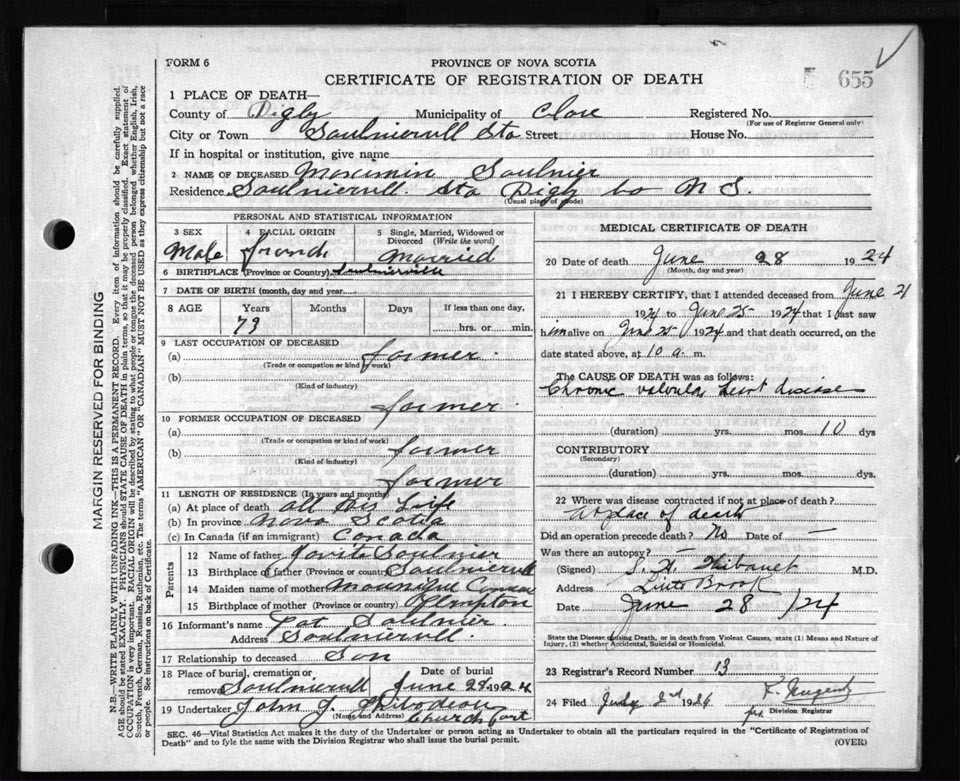 FORM 6
PROVINCE OF NOVA SCOTIA
CERTIFICATE OF REGISTRATION OF DEATH
655
1 PLACE OF DEATH—
County of Digby Municipality of Clare Registered No.
(For use of Registrar General only)
City or Town Saulniervill Sta Street: House No.
If in hospital or institution, give name
2 NAME OF DECEASED Maximin Saulnier
Residence Saulniervill. Sta Digby Co N S.
(Usual place of abode)
PERSONAL AND STATISTICAL INFORMATION
3 SEX Male
4 RACIAL ORIGIN french
5 Single, Married, Widowed or Divorced (Write the word) Married
6 BIRTHPLACE (Province or Country) Saulnierville
7 DATE OF BIRTH (month, day and year)
8 AGE Years 73 Months Days If less than one day, hrs. or min.
9 LAST OCCUPATION OF DECEASED
(a) farmer.
(Trade or occupation or kind of work)
(b)
(Kind of industry)
farmer.
10 FORMER OCCUPATION OF DECEASED
(a)
(Trade or occupation or kind of work)
(b) farmer
(Kind of industry)
farmer
11 LENGTH OF RESIDENCE (In years and months)
(a) At place of death all his Life
(b) In province Nova Scotia
(c) In Canada (if an immigrant) Canada
Parents
12 Name of father Saulnier
13 Birthplace of father (Province or country) Saulniervill
14 Maiden name of mother
15 Birthplace of mother (Province or country)
16 Informant's name Pat Saulnier.
Address Saulniervill.
17 Relationship to deceased Son
18 Place of burial, cremation or removal Saulniervill Date of burial June 29 1924
19 Undertaker John J. Thibodeau
(Name and Address) Church Point
MEDICAL CERTIFICATE OF DEATH
20 Date of death June 28 1924
(Month, day and year)
21 I HEREBY CERTIFY, that I attended deceased from June 21
1924 to June 25 1924 that I last saw
him alive on June 25 1924 and that death occurred, on the
date stated above, at 10 a. m.
The CAUSE OF DEATH was as follows:
Chronic valvular heart disease
(duration) yrs. mos. 10 dys
CONTRIBUTORY
(Secondary)
(duration) yrs. mos. dys.
22 Where was disease contracted if not at place of death?
At place of death
Did an operation precede death? No Date of —
Was there an autopsy? —
(Signed) Thibault M.D.
Address Little Brook
Date June 28 /24
State the Disease causing Death, or in death from Violent Causes, state (1) Means and Nature of
Injury, (2) whether Accidental, Suicidal or Homicidal.
23 Registrar's Record Number 13
24 Filed July 2nd 1924 Nugent
Division Registrar
SEC. 46—Vital Statistics Act makes it the duty of the Undertaker or person acting as Undertaker to obtain all the particulars required in the "Certificate of Registration of
Death" and to fyle the same with the Division Registrar who shall issue the burial permit.
(OVER)
MARGIN RESERVED FOR BINDING
N.B.—WRITE PLAINLY WITH UNFADING INK—THIS IS A PERMANENT RECORD. Every item of information should be carefully supplied.
AGE should be stated EXACTLY. PHYSICIANS should STATE CAUSE OF DEATH in plain terms, so that it may be properly classified. Exact statement of
OCCUPATION is very important. RACIAL ORIGIN will be described by stating to what people or tongue the deceased person belonged whether English, Irish,
Scotch, French, German, Russian, Ruthenian, etc. The terms "AMERICAN" OR "CANADIAN" MUST NOT BE USED as they express citizenship but not a race
or people. See instructions on back of Certificate.